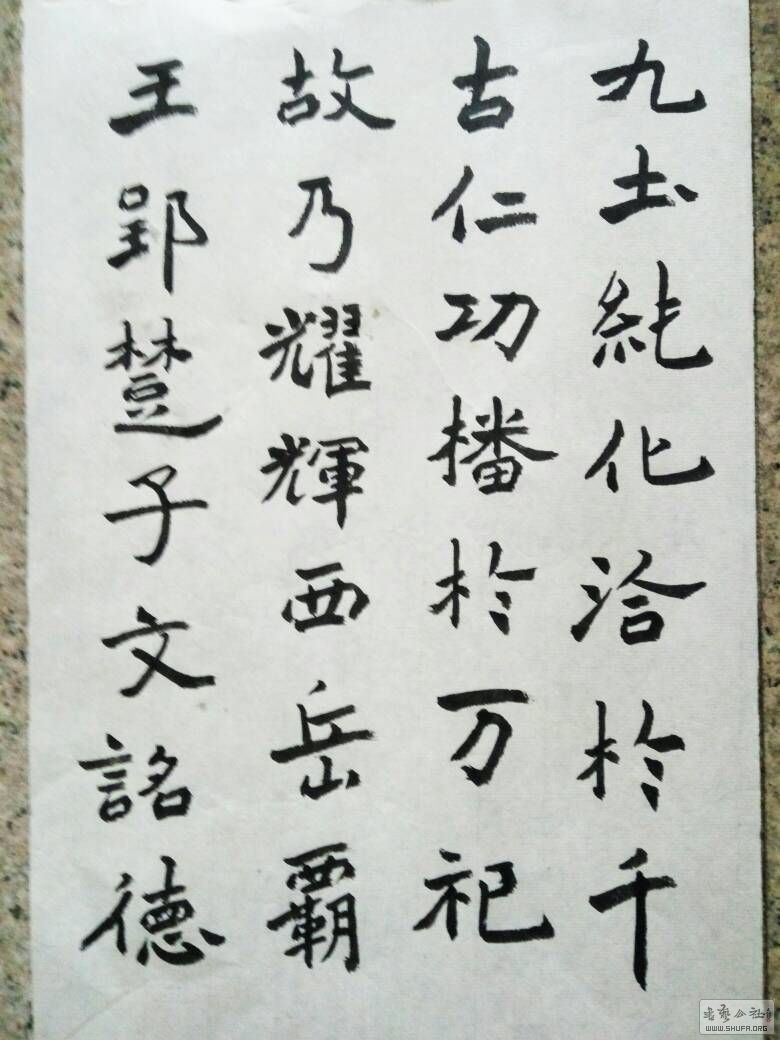 九圡純化洽於千
古仁功播於万祀
故乃耀輝西岳覇
王郢楚子文詺德
WWW.SHUFA.ORG